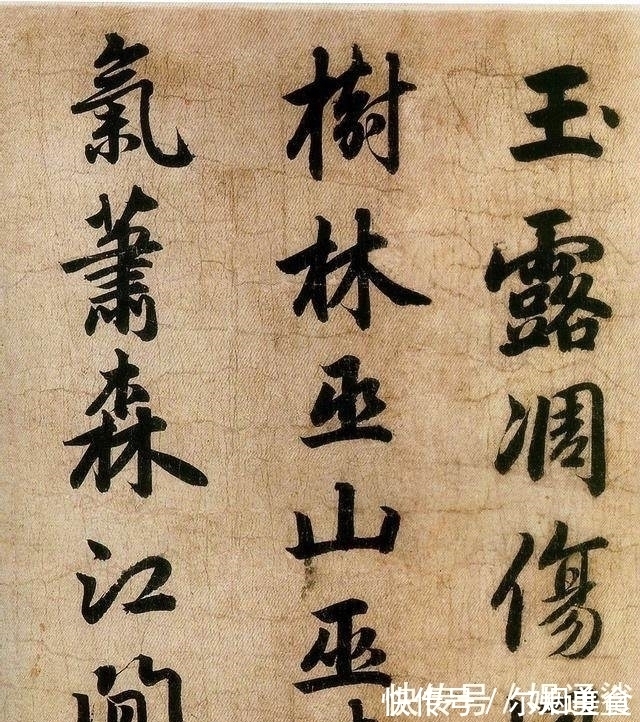 玉露凋傷
樹林巫山巫
氣蕭森江間
快传号 /